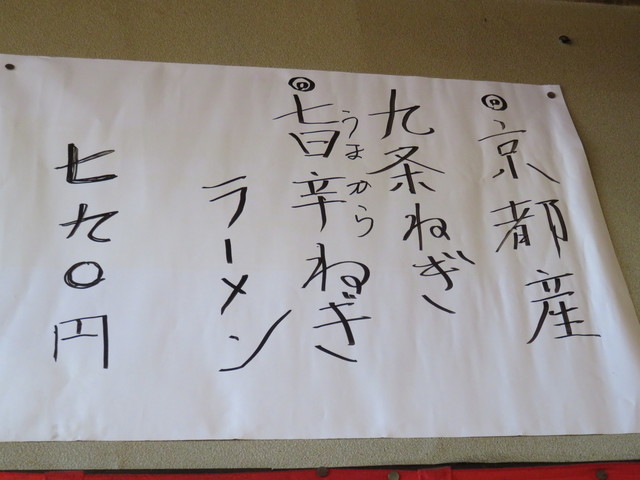 ◎京都産
九条ねぎ
◎旨辛ねぎ
うまから
ラーメン
七九〇円